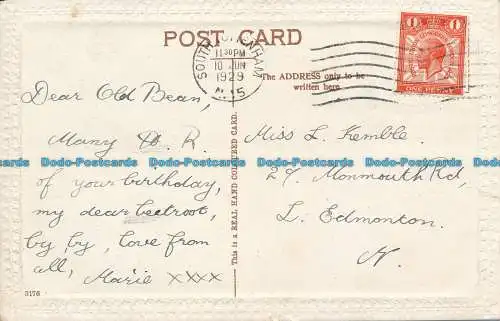 POST CARD
SOUTH TOTTENHAM
11.30 PM
10 JUN
1929
N.15
1
1
ONE PENNY
The ADDRESS only to be
written here
Dear Old Bean,
Many H. R.
Dodo-Postcards Dodo-Postcards Dodo-Postcards Dodo-Postcards
of your birthday,
my dear beetroot,
by, by, love from
all, Marie xxxx
This is a REAL HAND COLOURED CARD.
Miss L. Kemble.
27, Monmouth Rd,
L. Edmonton.
N.
3176